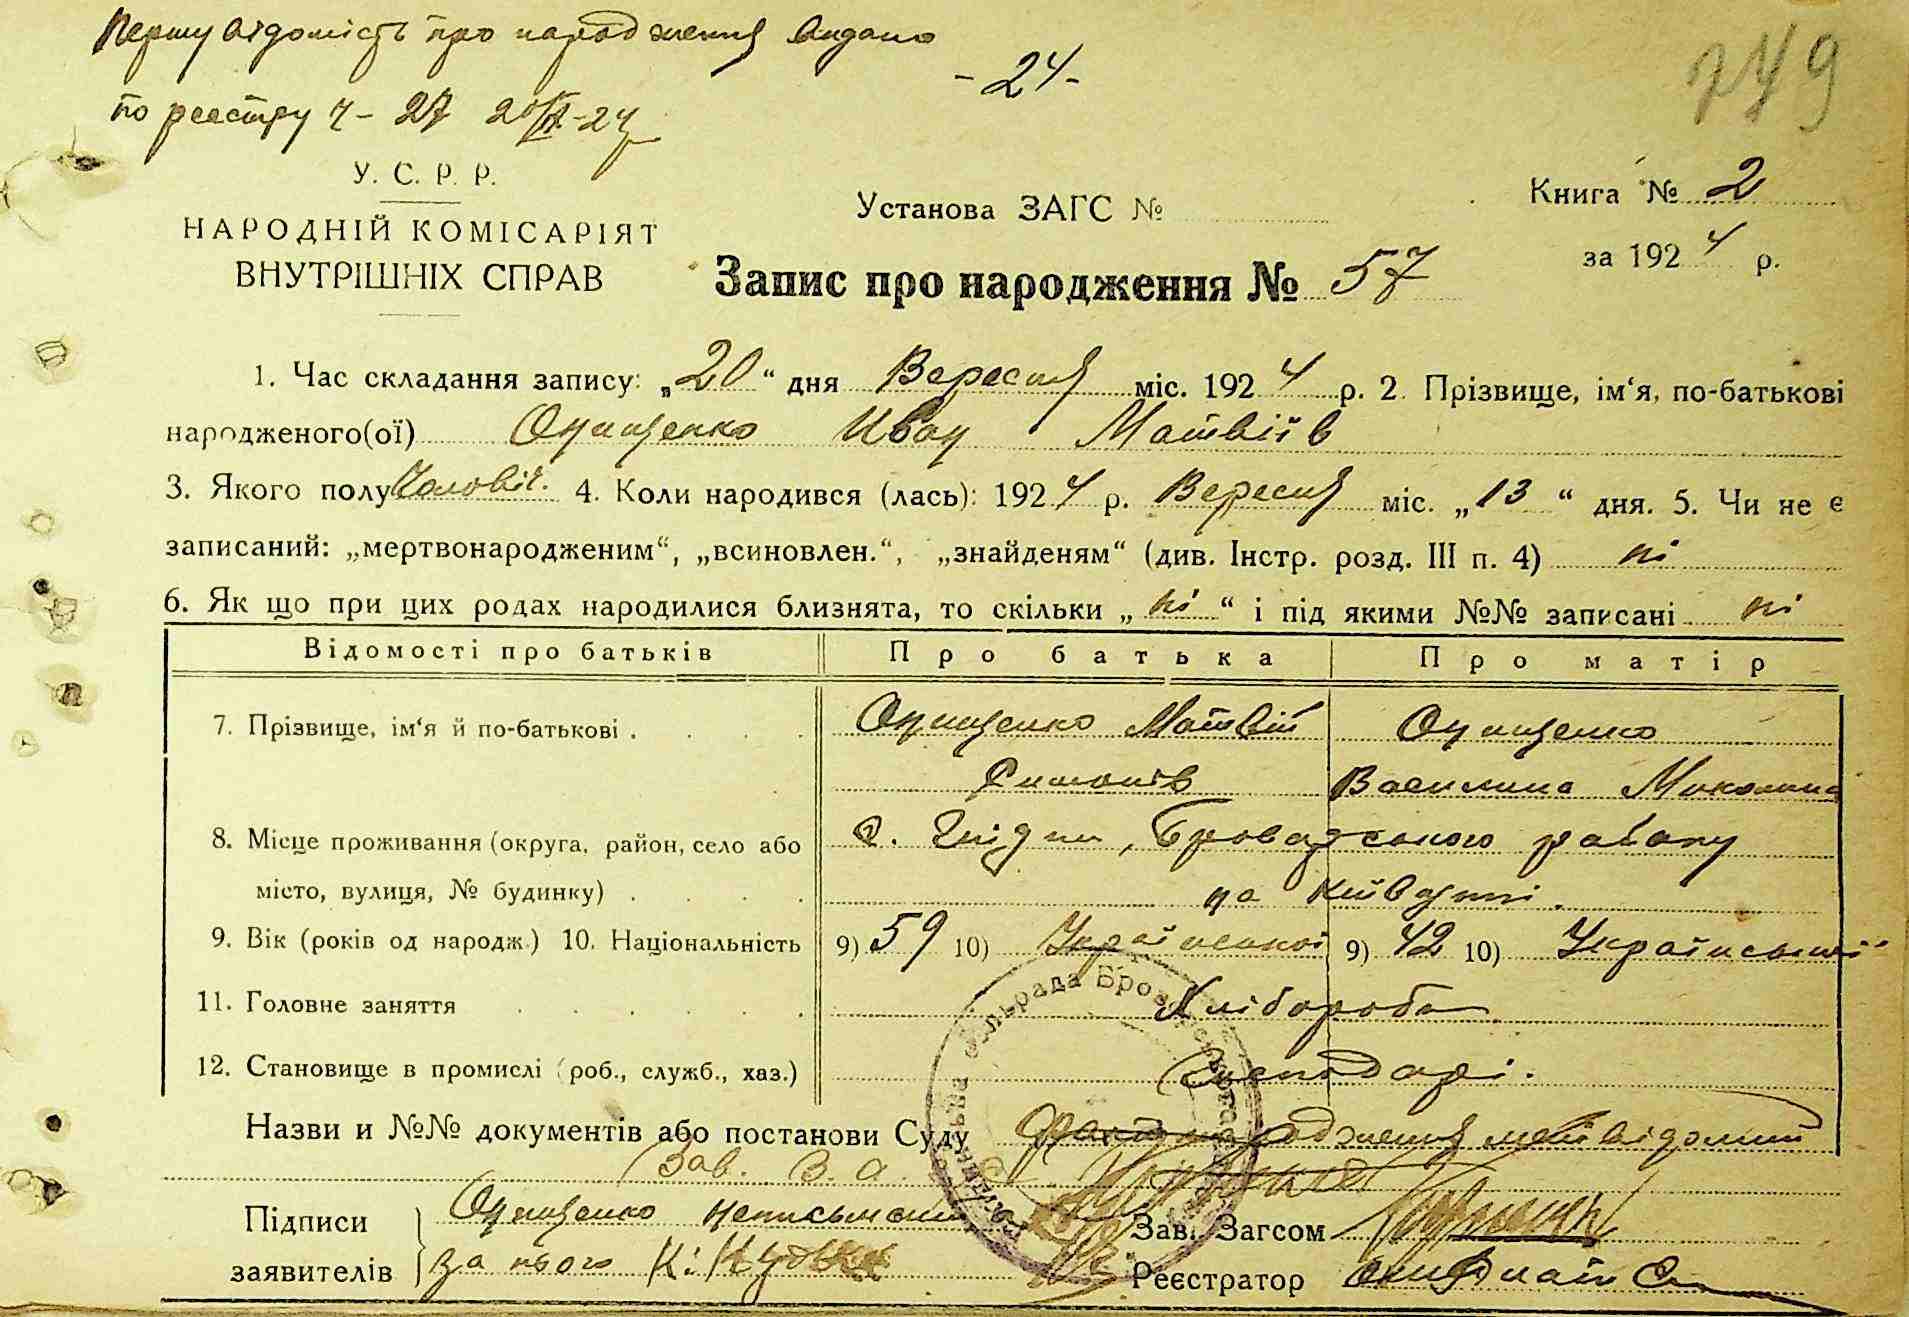 Першу відомість про народження видано
- 24 -
749
по реєстру Ч - 27 20/IX - 24
У. С. Р. Р.
НАРОДНІЙ КОМІСАРІЯТ
ВНУТРІШНІХ СПРАВ
Установа ЗАГС №
Книга № 2
за 1924 р.
Запис про народження № 57
1. Час складання запису: „20“ дня Вересня міс. 1924 р. 2. Прізвище, ім‘я, по-батькові
народженого(ої) Онищенко Иван Матвіїв
3. Якого полу Чоловіч. 4. Коли народився (лась): 1924 р. Вересня міс. „13“ дня. 5. Чи не є
записаний: „мертвонародженим“, „всиновлен.“, „знайденям“ (див. Інстр. розд. III п. 4) ні
6. Як що при цих родах народилися близнята, то скільки „ні“ і під якими №№ записані ні
Відомості про батьків Про батька Про матір
7. Прізвище, ім‘я й по-батькові . Онищенко Матвій Онищенко
Симонів Василина Миколина
8. Місце проживання (округа, район, село або с. Гнідин, Броварського района
місто, вулиця, № будинку) . на Київщині.
9. Вік (років од народж.) 10. Національність 9) 59 10) Української 9) 42 10) Української
11. Головне заняття Хлібороба
12. Становище в промислі (роб., служб., хаз.) Господарі.
Назви и №№ документів або постанови Суду Факт народження мені відомий
Зав. З. А.
Підписи Онищенко неписьмений Зав. Загсом
заявителів за нього К. Реєстратор